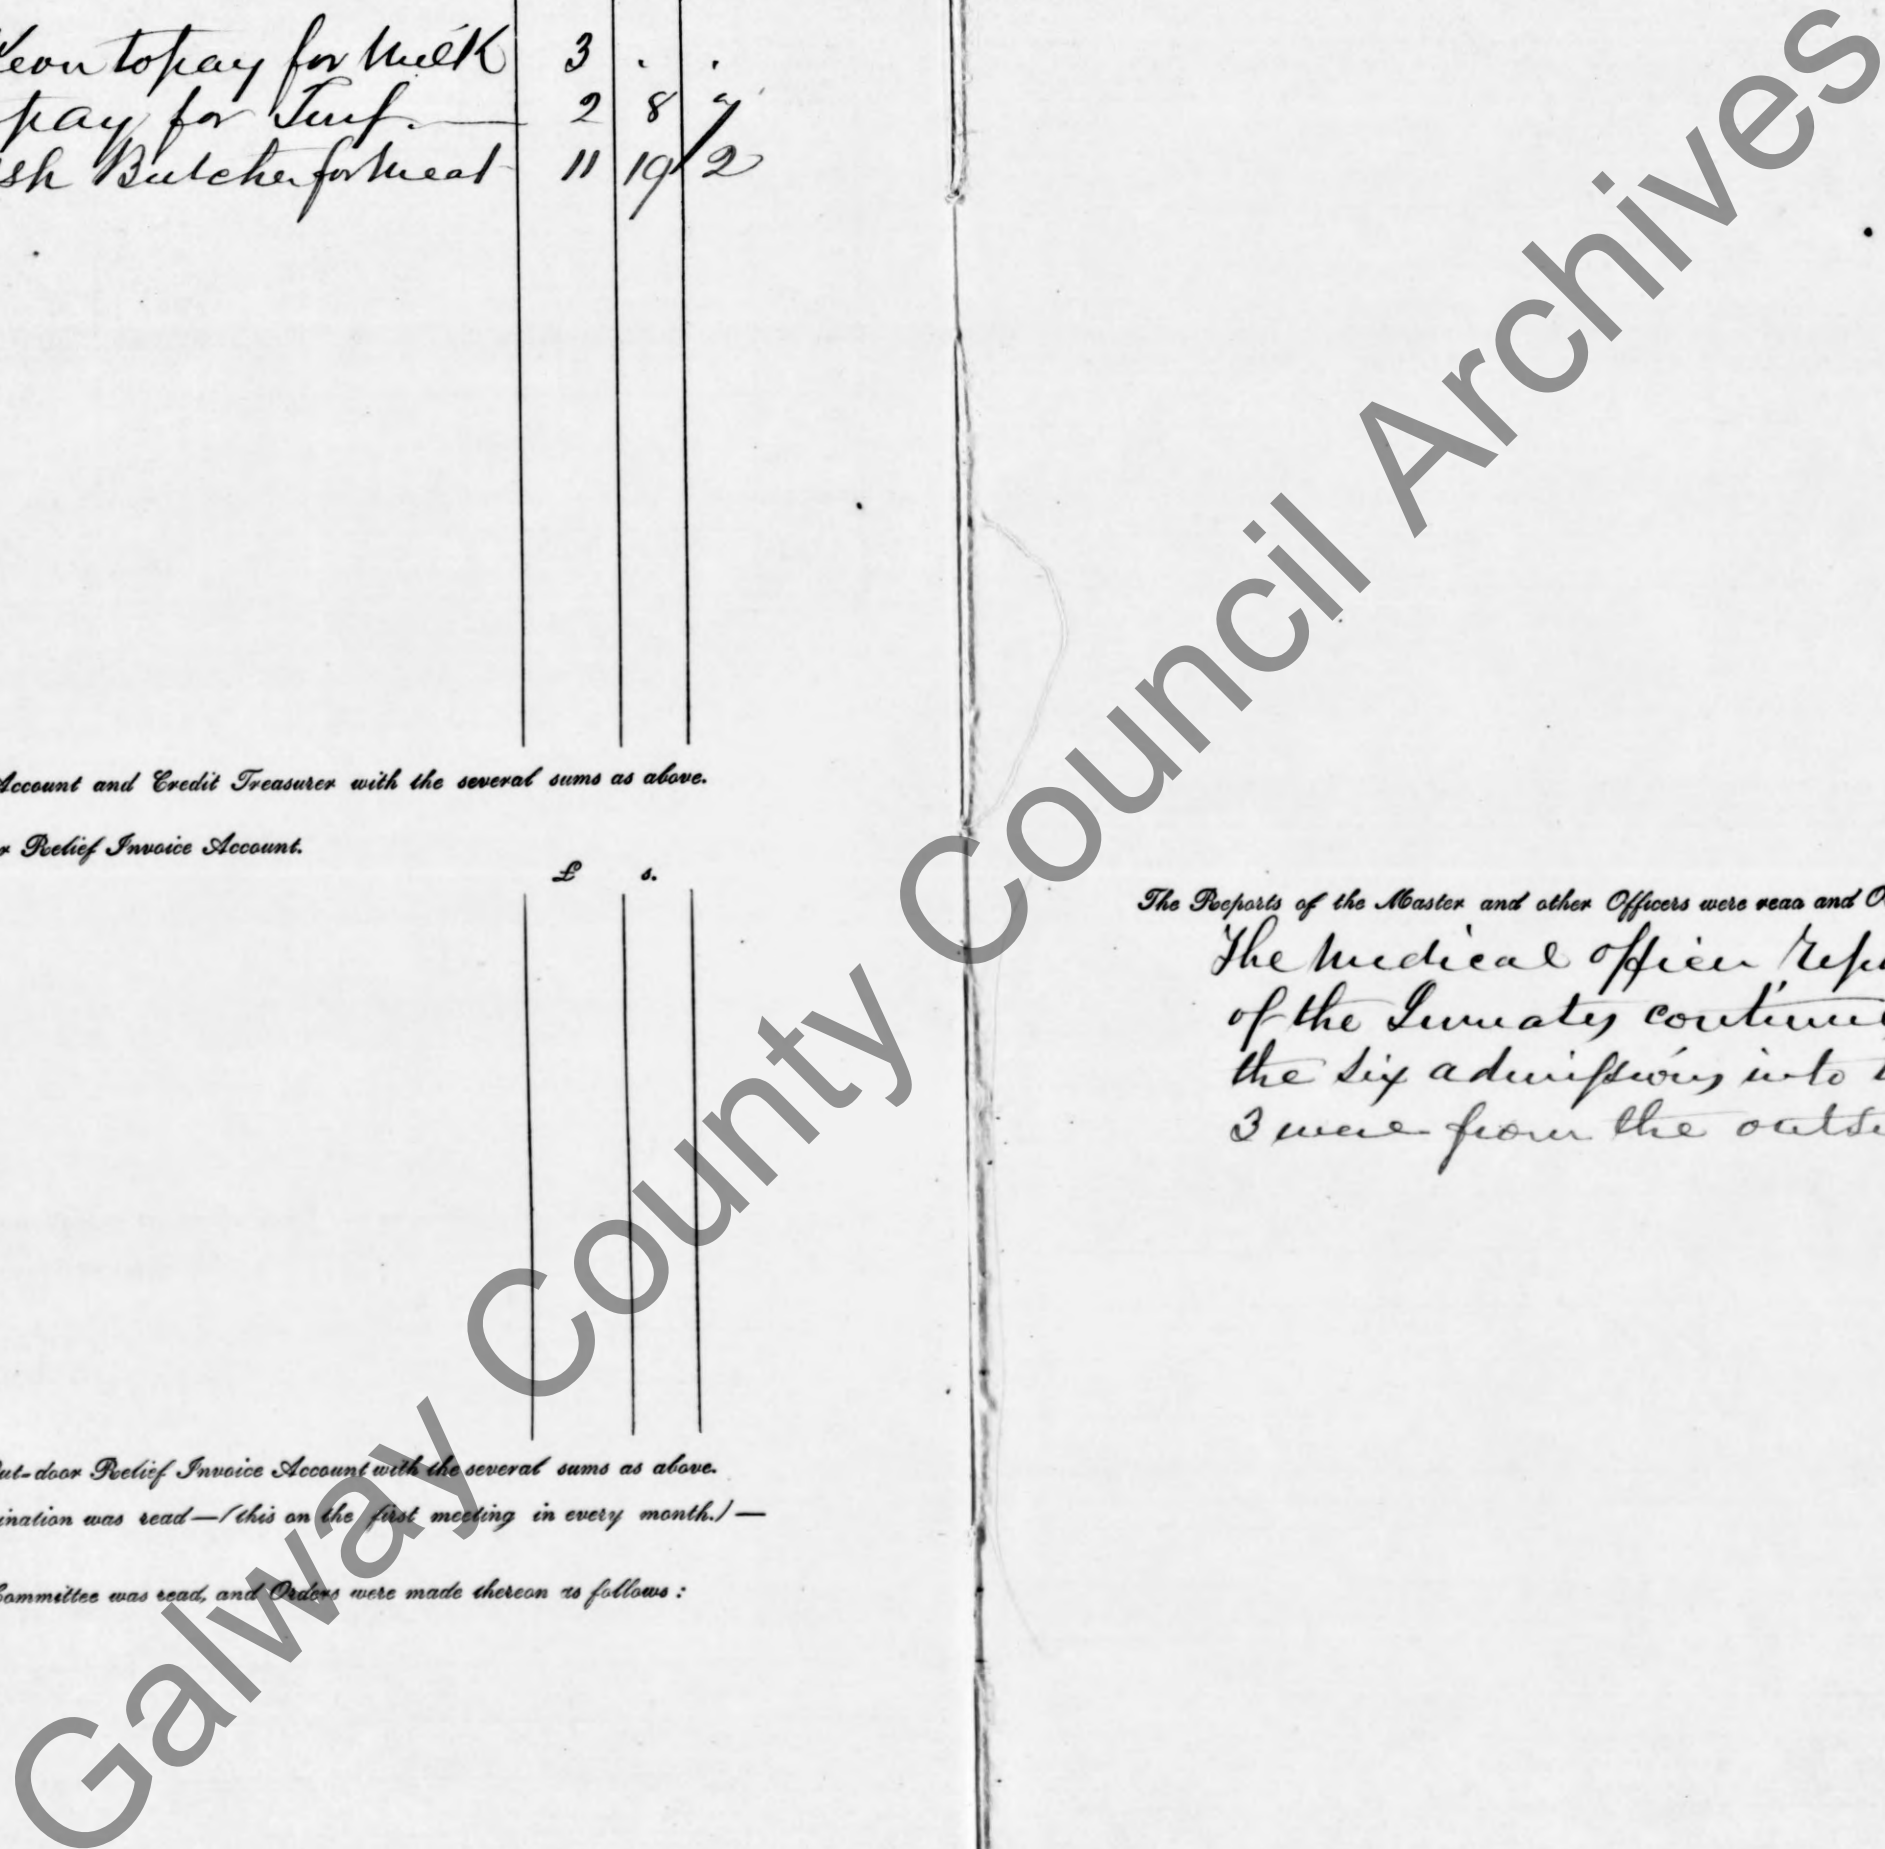 Keon to pay for Milk 3 . .
pay for Turf. — 2 8 "
sh Butcher for Meat 11 19 2
Account and Credit Treasurer with the several sums as above.
r Relief Invoice Account.
£ s.
ut-door Relief Invoice Account with the several sums as above.
ination was read—(this on the first meeting in every month.)—
Committee was read, and Orders were made thereon as follows:
The Reports of the Master and other Officers were read and O
The Medical Officer repo
of the Inmates continue
the six admissions into t
3 were from the outsi
Galway County Council Archives